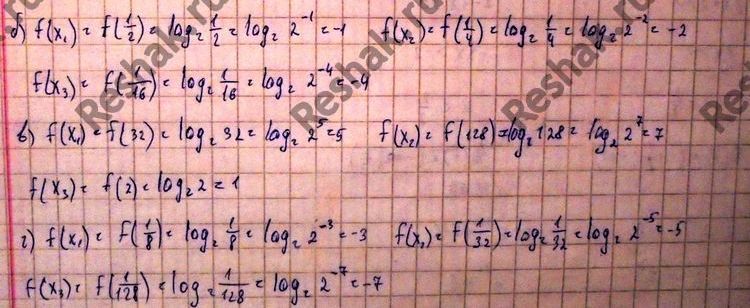 б) f(x₁) = f(1/2) = log₂ 1/2 = log₂ 2⁻¹ = -1 f(x₂) = f(1/4) = log₂ 1/4 = log₂ 2⁻² = -2
f(x₃) = f(1/16) = log₂ 1/16 = log₂ 2⁻⁴ = -4
в) f(x₁) = f(32) = log₂ 32 = log₂ 2⁵ = 5 f(x₂) = f(128) = log₂ 128 = log₂ 2⁷ = 7
f(x₃) = f(2) = log₂ 2 = 1
г) f(x₁) = f(1/8) = log₂ 1/8 = log₂ 2⁻³ = -3 f(x₂) = f(1/32) = log₂ 1/32 = log₂ 2⁻⁵ = -5
f(x₃) = f(1/128) = log₂ 1/128 = log₂ 2⁻⁷ = -7
Reshak.ru
Reshak.ru
Reshak.ru
Reshak.ru